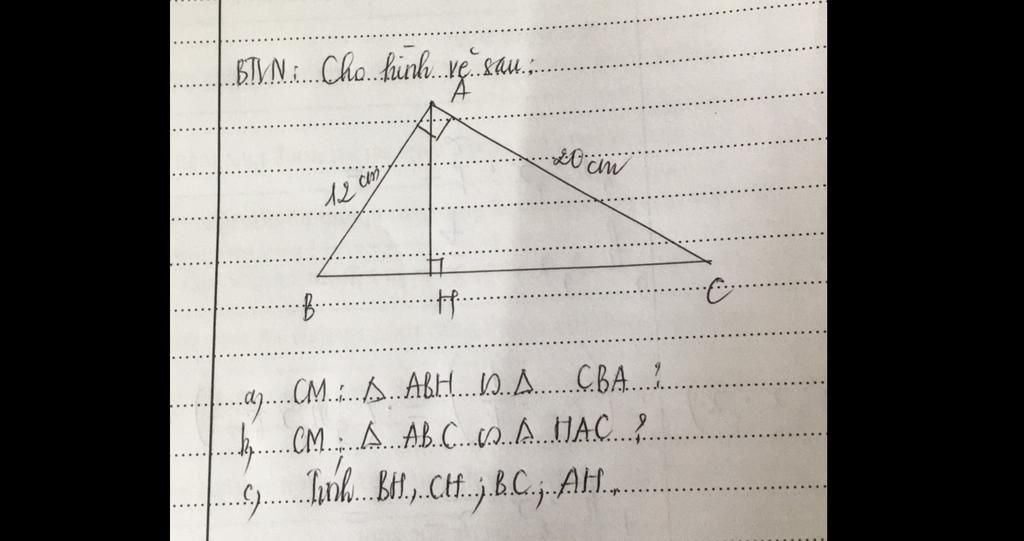 BTVN: Cho hình vẽ sau:
A
12 cm
20 cm
B
H
C
a, CM: Δ ABH ∽ Δ CBA ?
b, CM: Δ ABC ∽ Δ HAC ?
c, Tính BH, CH; BC; AH.